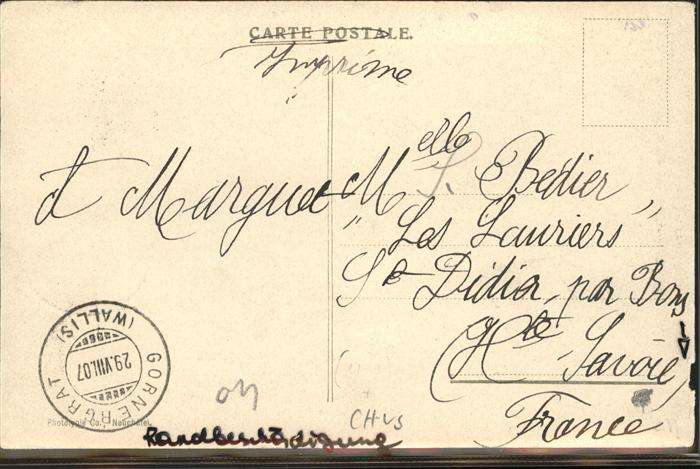 CARTE POSTALE.
Imprimé
Melle S. Bédier
"Les Lauriers"
St Didier, par Bons
Hte Savoie
France
GORNERGRAT
(WALLIS)
29.VIII.07
Phototypie Co., Neuchâtel.
CHVS
Randbeschädigung